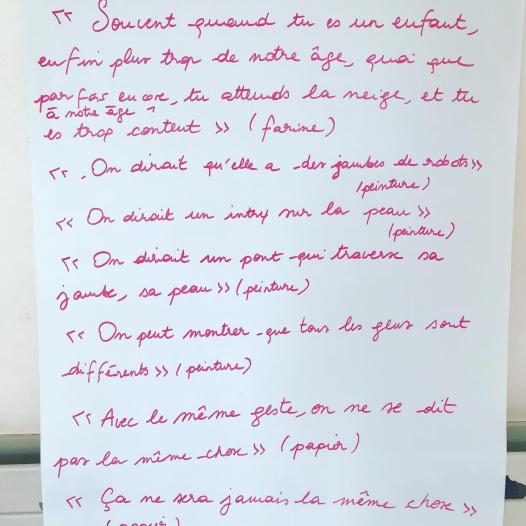 « Souvent quand tu es un enfant,
enfin plus trop de notre âge, quoi que
parfois encore, tu attends la neige, et tu
à notre âge
es trop content » (farine)
« On dirait qu'elle a des jambes de robots »
(peinture)
« On dirait un intru sur la peau »
(peinture)
« On dirait un pont qui traverse sa
jambe, sa peau » (peinture)
« On peut montrer que tous les gens sont
différents » (peinture)
« Avec le même geste, on ne se dit
pas la même chose » (papier)
« Ça ne sera jamais la même chose »